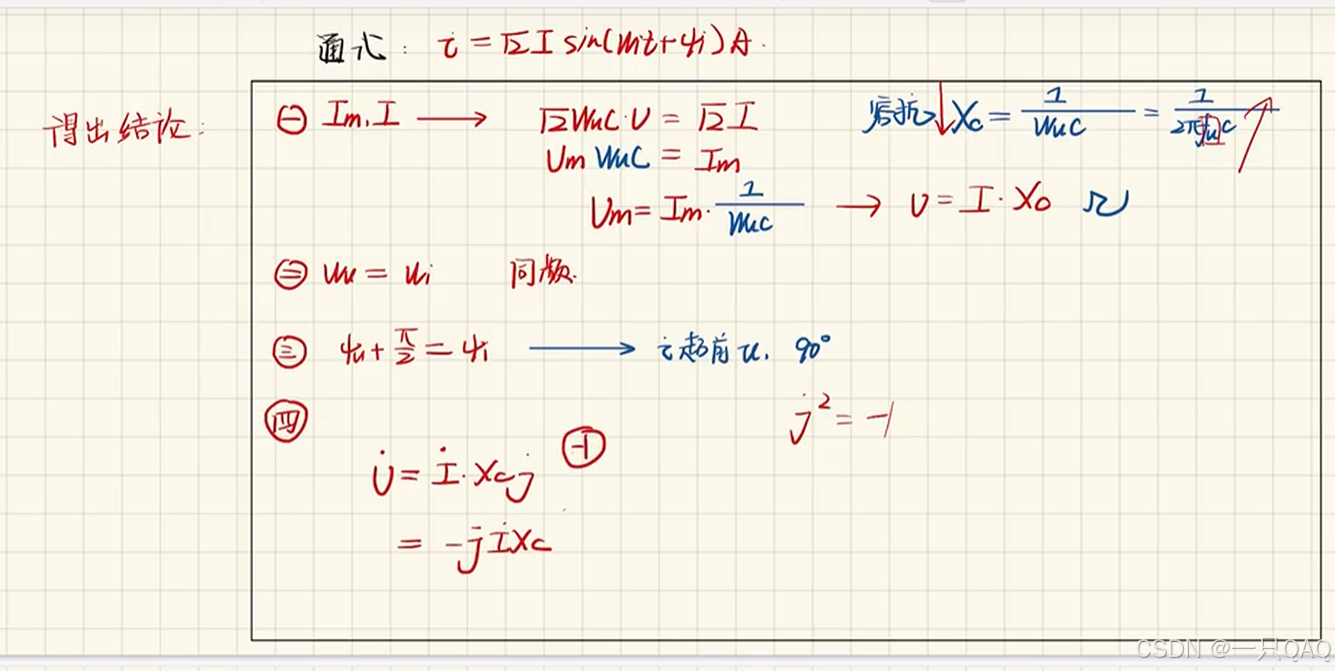 通式: i = √2 I sin(ωit+ψi)A.
得出结论:
㊀ Im, I → √2 ωuC·U = √2 I
Um ωuC = Im
Um = Im· 1/ωuC → U = I·Xc Ω
容抗↓Xc = 1/ωuC = 1/2πfuC
㊁ ωu = ωi 同频.
㊂ ψu + π/2 = ψi → i超前u. 90°
㊃
j² = -1
U̇ = İ·Xc j (-1)
= -jİXc
CSDN @一只QAQ